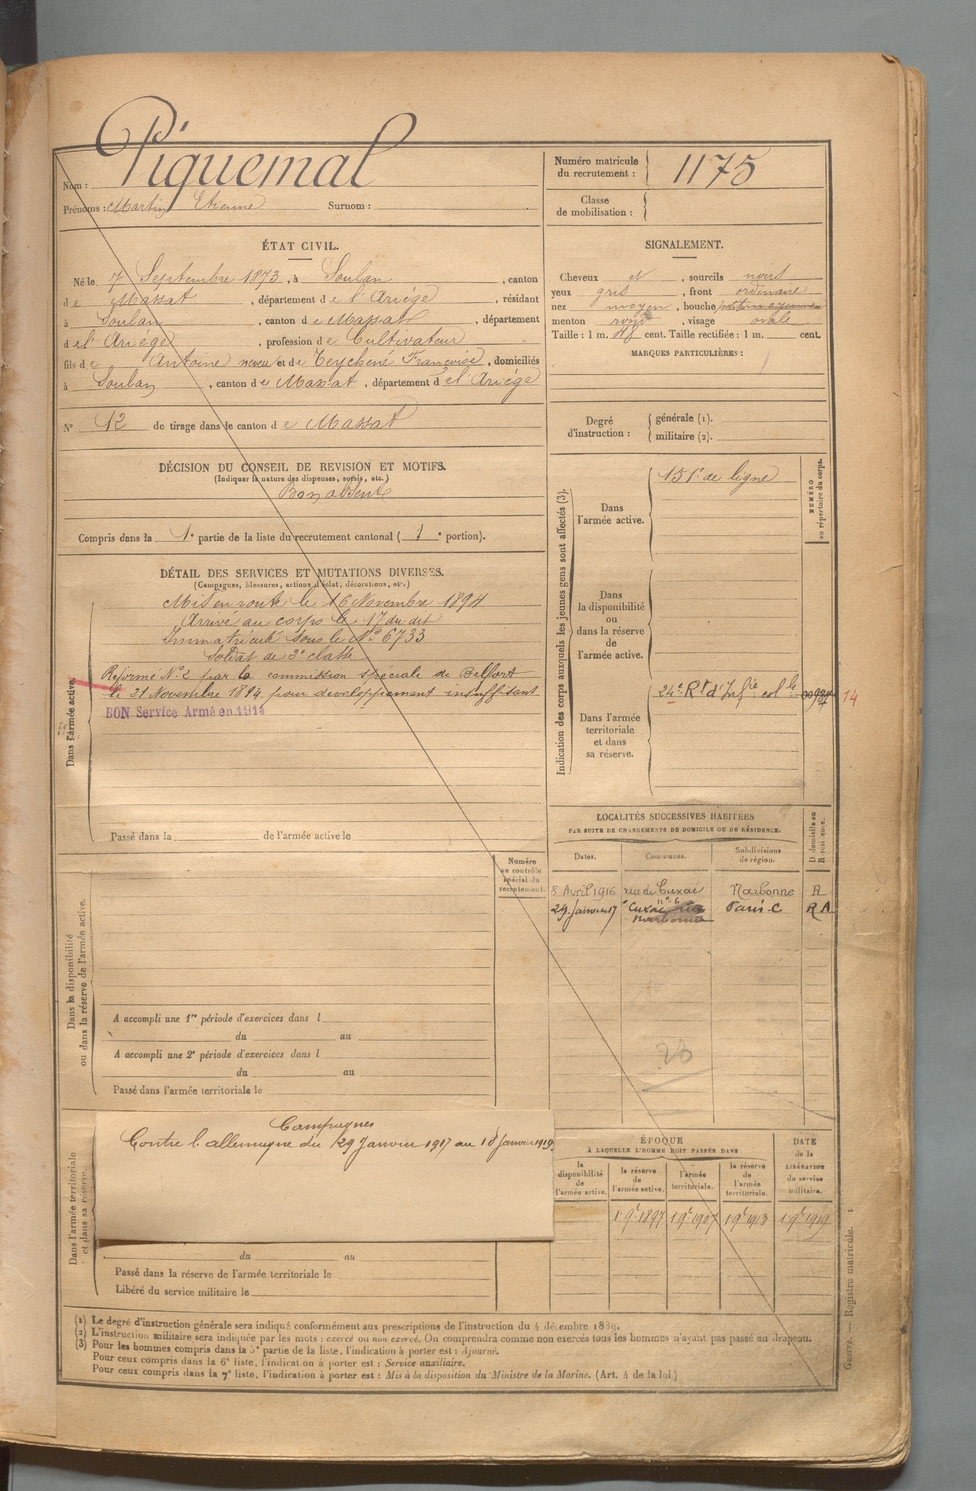 Nom : Piquemal
Prénoms : Martin Etienne Surnom :
Numéro matricule du recrutement : 1175
Classe de mobilisation :
ÉTAT CIVIL.
Né le 7 Septembre 1873, à Soulan, canton
de Massat, département de l'Ariége, résidant
à Soulan, canton de Massat, département
de l'Ariége, profession de Cultivateur
fils de Antoine et de Teychené Françoise, domiciliés
à Soulan, canton de Massat, département de l'Ariége
N° 12 de tirage dans le canton de Massat
SIGNALEMENT.
Cheveux et, sourcils noirs
yeux gris, front ordinaire
nez moyen, bouche
menton rond, visage ovale
Taille : 1 m. cent. Taille rectifiée : 1 m. cent.
MARQUES PARTICULIÈRES :
Degré d'instruction :
générale (1).
militaire (2).
DÉCISION DU CONSEIL DE REVISION ET MOTIFS.
(Indiquer la nature des dispenses, sursis, etc.)
Bon absent
Compris dans la 1e partie de la liste du recrutement cantonal (1e portion).
DÉTAIL DES SERVICES ET MUTATIONS DIVERSES.
(Campagnes, blessures, actions d'éclat, décorations, etc.)
Dans l'armée active.
Mis en route le 16 Novembre 1894
Arrivé au corps le 17 du dit
Immatriculé sous le N° 6733
Soldat de 2e classe
Réformé N° 2 par la commission spéciale de Belfort
le 21 Novembre 1894 pour developpement insuffisant
BON Service Armé en 1914
Passé dans la de l'armée active le
Indication des corps auxquels les jeunes gens sont affectés (3).
NUMÉRO au répertoire du corps.
Dans l'armée active.
151e de ligne
Dans la disponibilité ou dans la réserve de l'armée active.
Dans l'armée territoriale et dans sa réserve.
24e Rt d'Infie colle
14
LOCALITÉS SUCCESSIVES HABITÉES
PAR SUITE DE CHANGEMENTS DE DOMICILE OU DE RÉSIDENCE.
Dates. Communes. Subdivisions de région. D domicile ou R résidence.
8 Avril 1916 rue de Cuxac Narbonne R
29 Janvier 17 Cuxac n° 6 Paris C RA
23
Numéro au contrôle spécial du recrutement.
Dans la disponibilité ou dans la réserve de l'armée active.
A accompli une 1re période d'exercices dans l
du au
A accompli une 2e période d'exercices dans l
du au
Passé dans l'armée territoriale le
Dans l'armée territoriale et dans sa réserve.
Campagnes
Contre l'allemagne du 29 Janvier 1917 au 18 Janvier 1919
du au
Passé dans la réserve de l'armée territoriale le
Libéré du service militaire le
ÉPOQUE
À LAQUELLE L'HOMME DOIT PASSER DANS
la disponibilité de l'armée active.
la réserve de l'armée active.
l'armée territoriale.
la réserve de l'armée territoriale.
DATE de la LIBÉRATION du service militaire.
1 9e 1897 1 9e 1907 1 9e 1913 1 9e 1919
(1) Le degré d'instruction générale sera indiqué conformément aux prescriptions de l'instruction du 4 décembre 1889.
(2) L'instruction militaire sera indiquée par les mots : exercé ou non exercé. On comprendra comme non exercés tous les hommes n'ayant pas passé au drapeau.
(3) Pour les hommes compris dans la 5e partie de la liste, l'indication à porter est : Ajourné.
Pour ceux compris dans la 6e liste, l'indication à porter est : Service auxiliaire.
Pour ceux compris dans la 7e liste, l'indication à porter est : Mis à la disposition du Ministre de la Marine. (Art. 4 de la loi.)
Guerre. — Registre matricule. 1